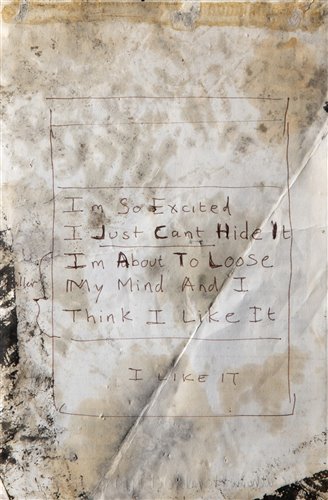 Im So Excited
I Just Cant Hide It
Im About To Loose
My Mind And I
Think I Like It
I LIKE IT